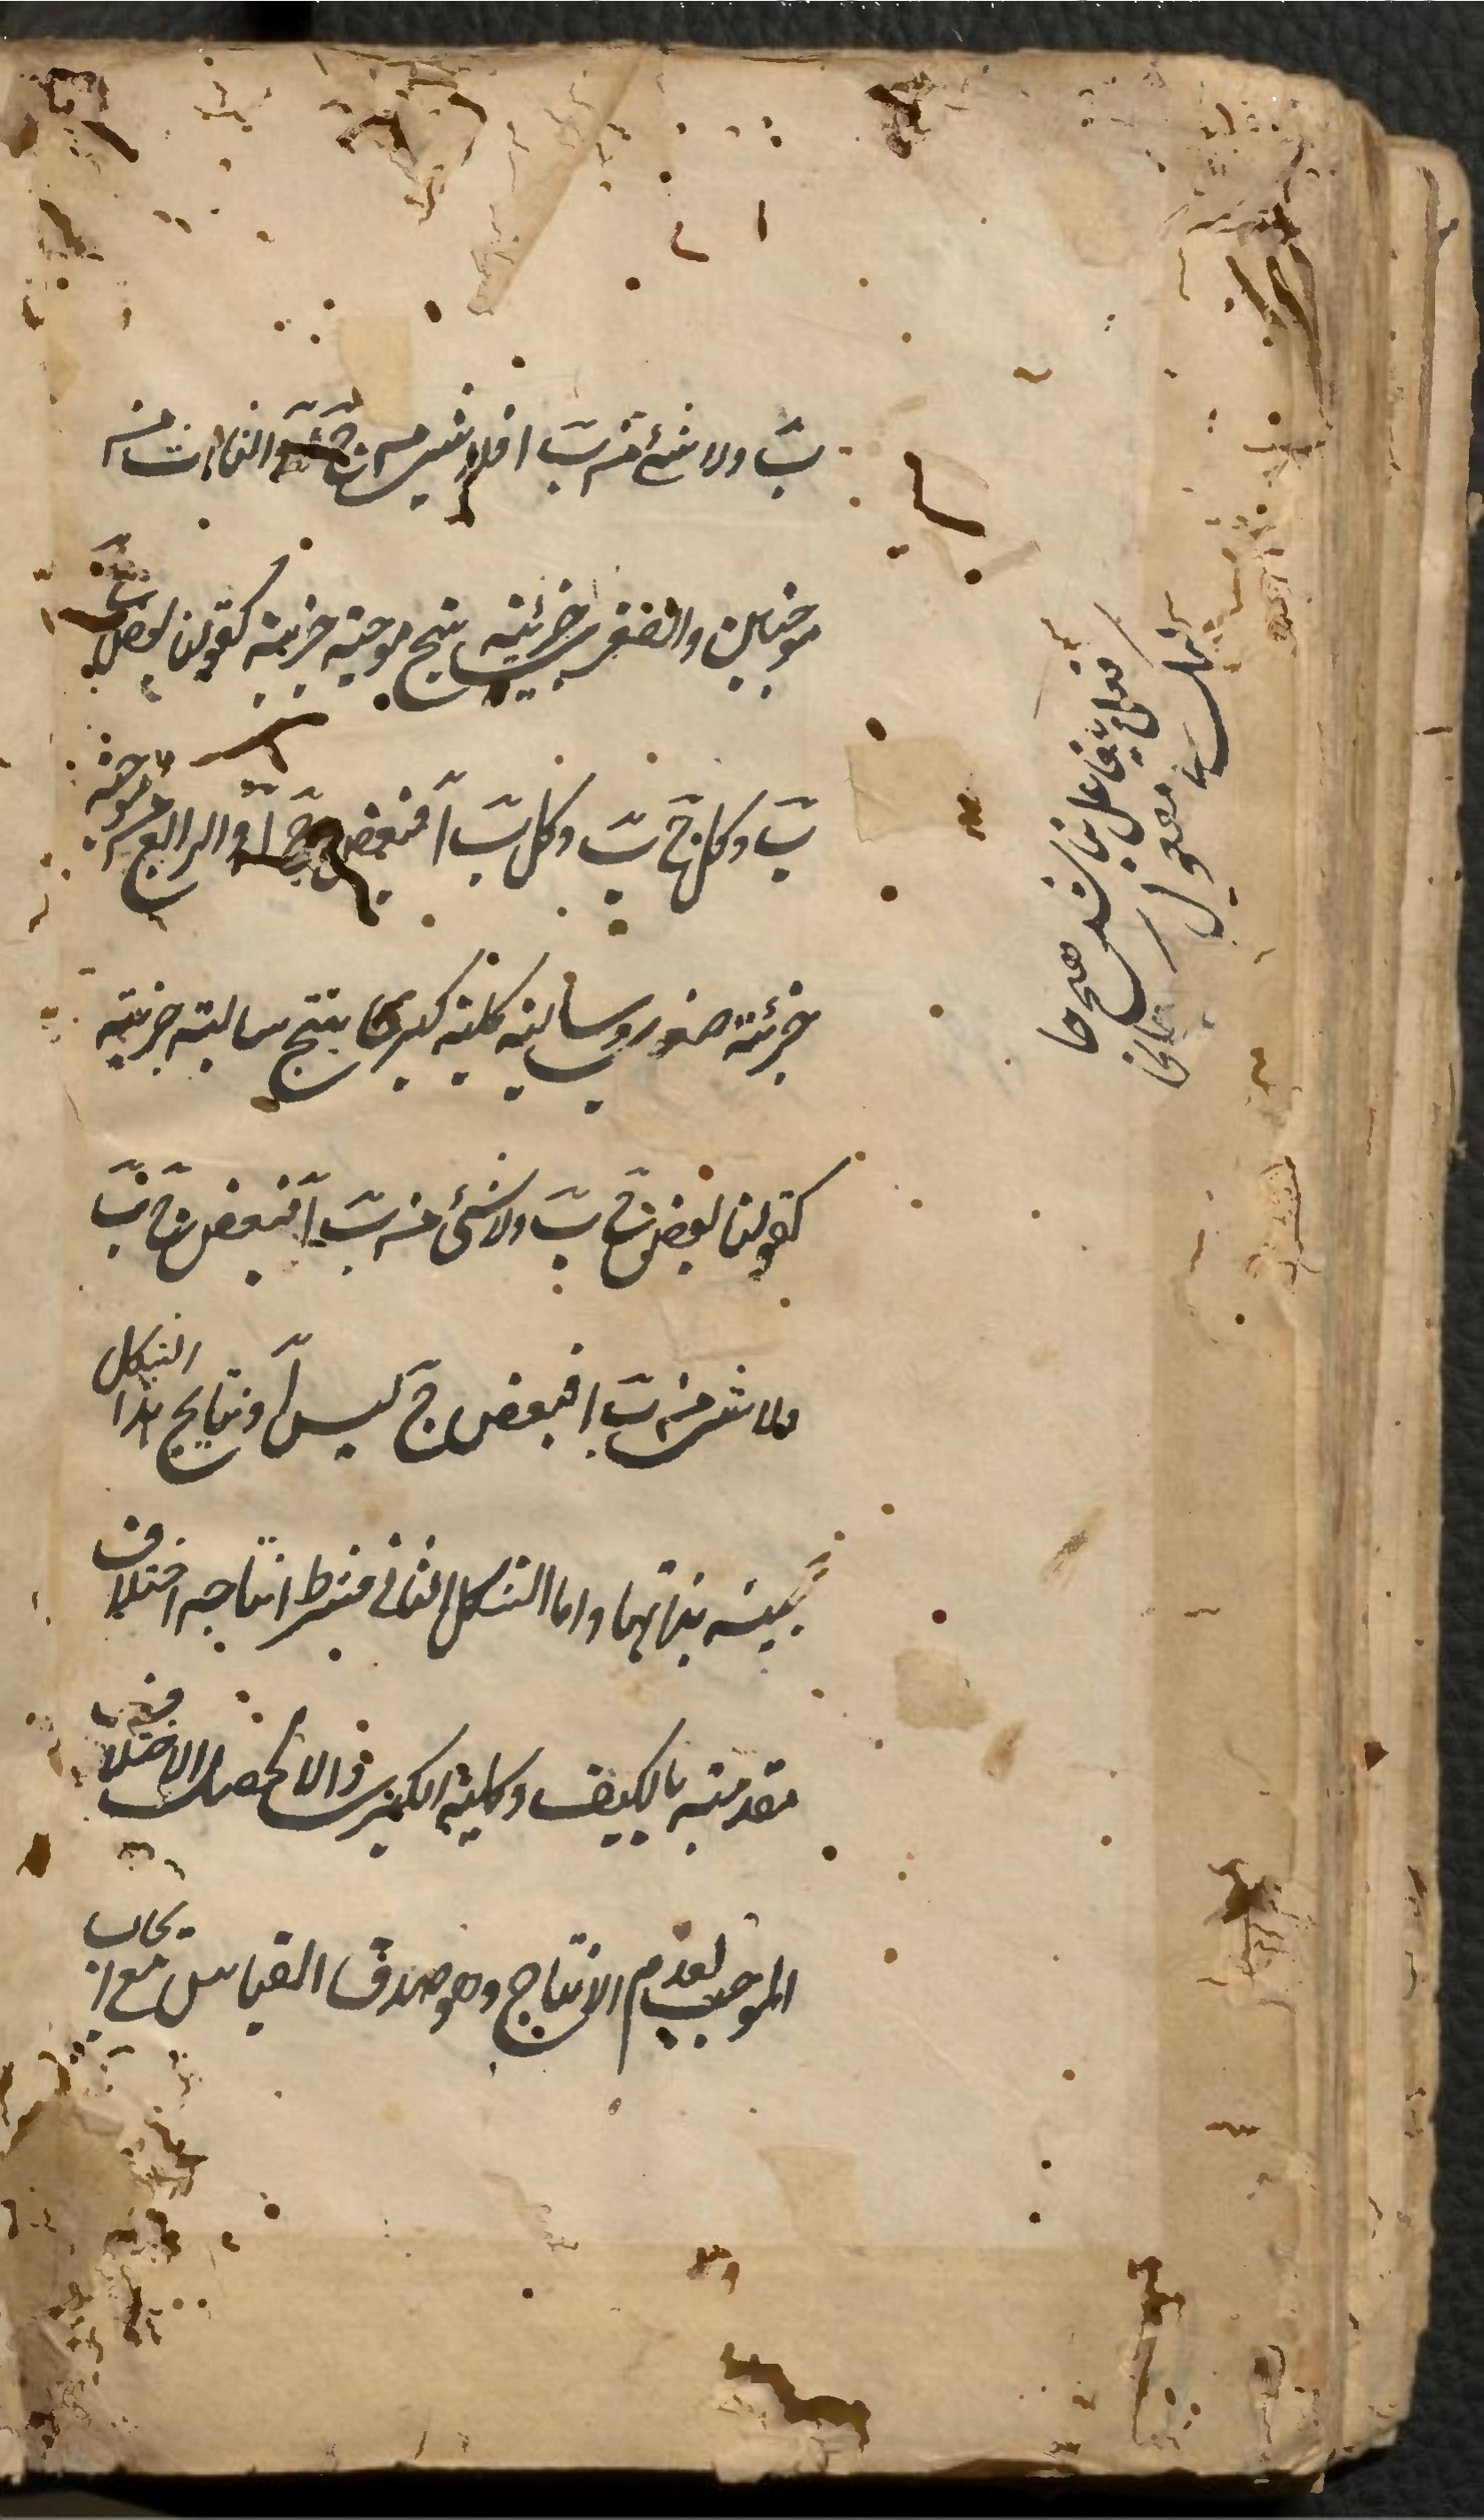 ب ولا شئ من ب ا فلا شئ من ج ا الثالث من
موجبتين والصغرى جزئية ينتج موجبة جزئية كقولنا بعض ج
ب وكل ج ب وكل ب ا فبعض ج ا والرابع من موجبة
جزئية صغرى وسالبة كلية كبرى ينتج سالبة جزئية
كقولنا بعض ج ب ولا شئ من ب ا فبعض ج ب
ولا شئ من ب ا فبعض ج ليس ا ونتايج هذا الشكل
بينة بذاتها واما الشكل الثانى فشرط انتاجه اختلاف
مقدمتيه بالكيف وكلية الكبرى والا لحصل الاختلاف
الموجب لعدم الانتاج وهو صدق القياس مع ايجاب